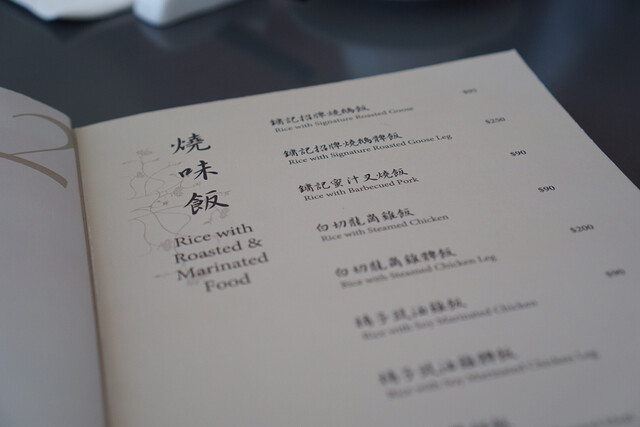 燒味飯
Rice with
Roasted &
Marinated
Food
鏞記招牌燒鵝飯
Rice with Signature Roasted Goose
$95
鏞記招牌燒鵝髀飯
Rice with Signature Roasted Goose Leg
$250
鏞記蜜汁叉燒飯
Rice with Barbecued Pork
$90
白切龍崗雞飯
Rice with Steamed Chicken
$90
白切龍崗雞髀飯
Rice with Steamed Chicken Leg
$200
豉油雞飯
Rice with Soy Marinated Chicken
$90
豉油雞髀飯
Rice with Soy Marinated Chicken Leg